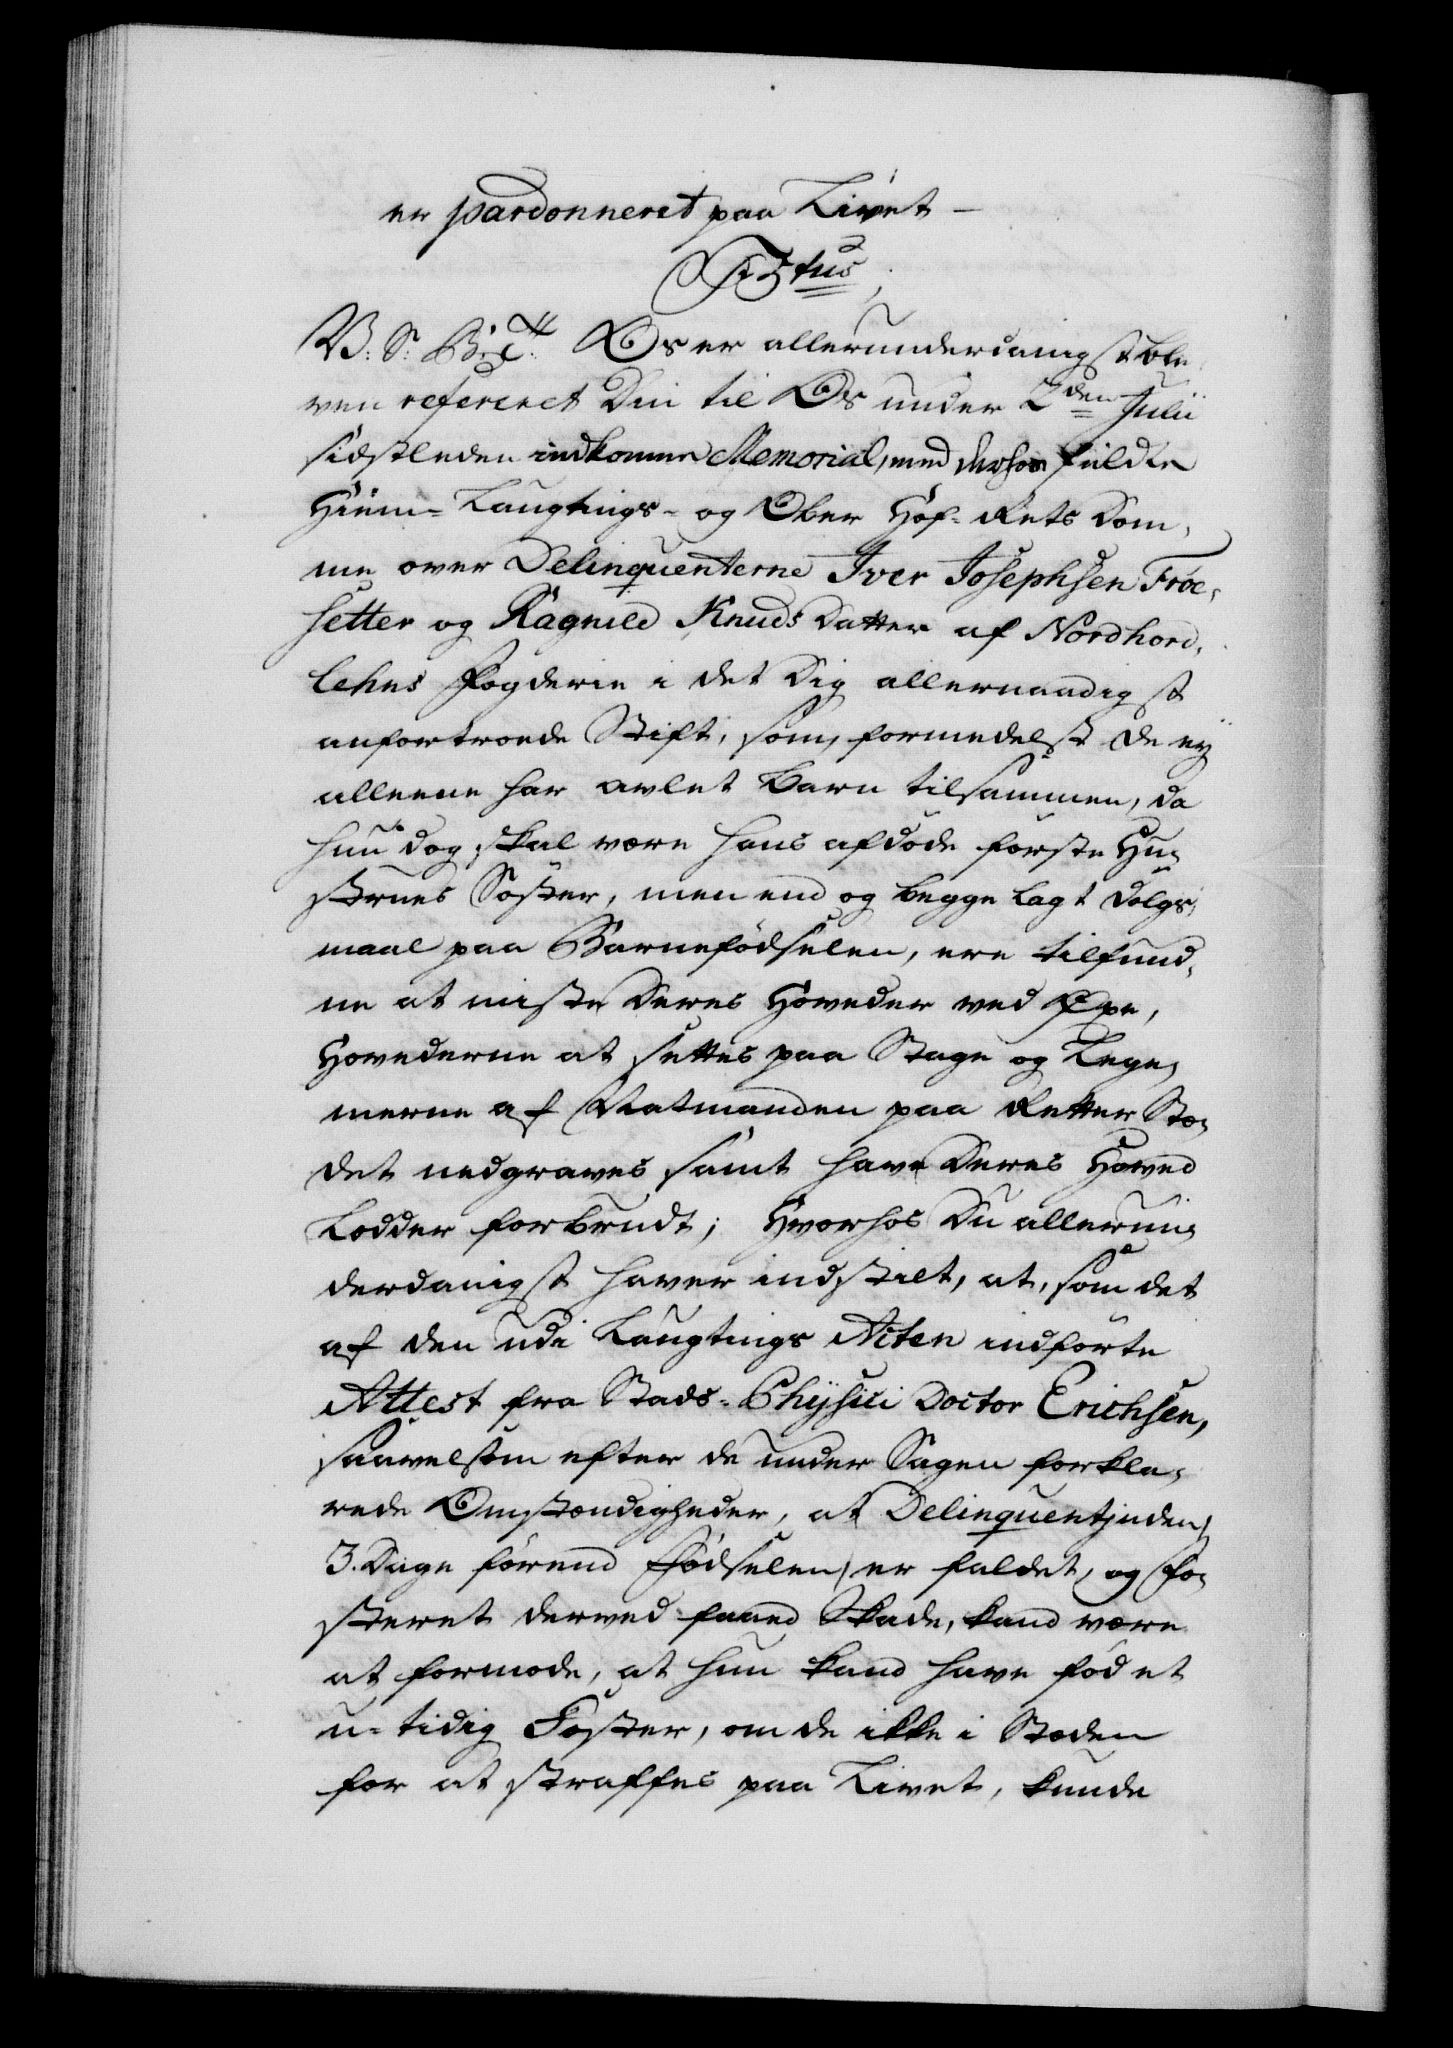 er pardonneret paa Livet –
F5tus
V: S: G: T: Os er allerunderdanigst ble,
ven refereret Din til Os under 2den Julii
sidstleden indkomne Memorial, med derhos fuldte
Hiem- Laugtings- og Ober Hof- Rets Dom,
me over Delinquenterne Iver Josephsen Frøe,
setter og Ragnild Knuds Datter af Nordhord,
lehns Fogderie i det Dig allernaadigst
anfortroede Stift, som, formedelst de ej
alleene har avlet Barn tilsammen, da
hun dog skal være hans afdøde første Hu,
strues Søster, men end og begge lagt Dølgs,
maal paa Barnefødselen, ere tilfund,
ne at miste deres Hoveder ved Øxe,
Hovederne at settes paa Stage og Lege,
merne af Natmanden paa Retter Stæ,
det nedgraves samt have deres Hoved
Lodder forbrudt; Hvorhos Du allerun,
derdanigst haver indstilt, at, som det
af den udi Laugtings Acten indførte
Attest fra Stads- Physici Doctor Erichsen,
saavelsom efter de under Sagen forkla,
rede Omstændigheder, at Delinquentinden,
3. Dage førend Fødselen, er faldet, og Fo,
steret derved faaed Skade, kand være
at formode, at hun kand have fød et
u-tidig Foster, om de ikke i Stæden
for at straffes paa Livet, kunde